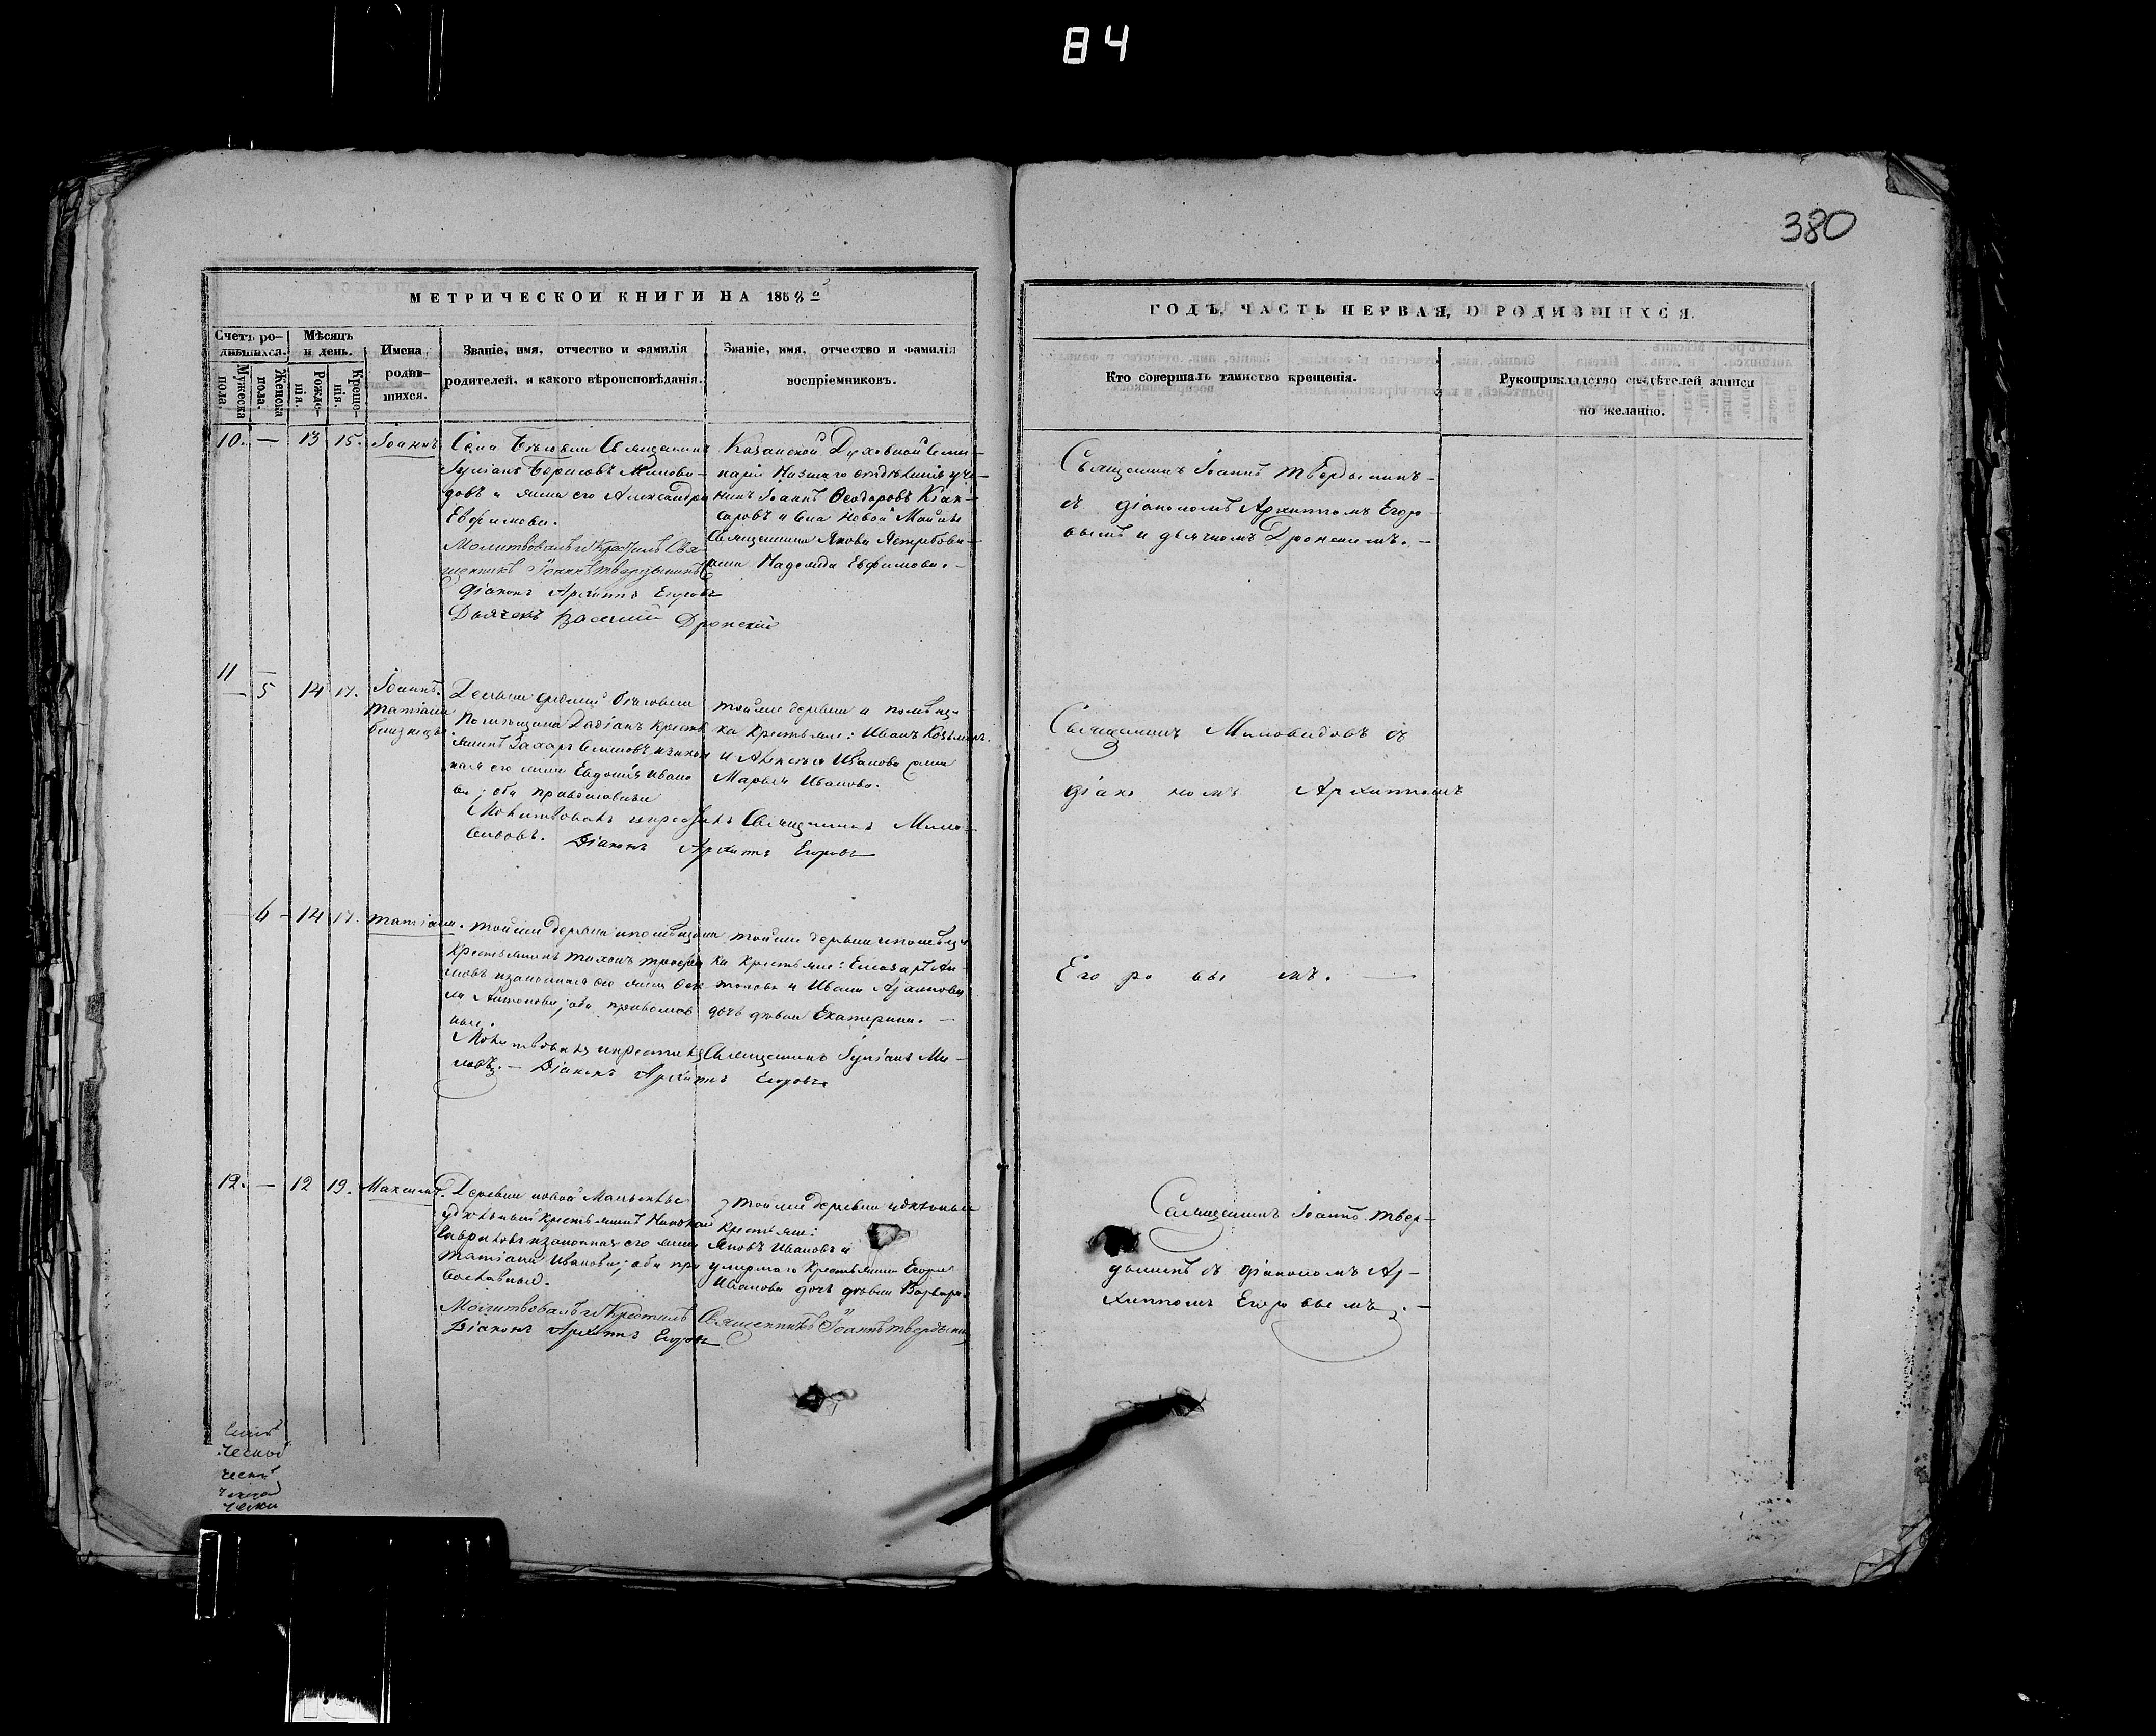 84
380
МЕТРИЧЕСКОЙ КНИГИ НА 1858
ГОДЪ, ЧАСТЬ ПЕРВАЯ, О РОДИВШИХСЯ.
Счетъ ро-
дившихся.
Мѣсяцъ
и день.
Имена
родив-
шихся.
Званіе, имя, отчество и фамилія
родителей, и какого вѣроисповѣданія.
Званіе, имя, отчество и фамилія
воспріемниковъ.
Мужеска
пола.
Женска
пола.
Рожде-
нія.
Креще-
нія.
Кто совершалъ таинство крещенія.
Рукоприкладство свидѣтелей записи
по желанію.
10. — 13 15. Іоаннъ
Священникъ
Борисовъ Милови-
довъ и жена его Александра
Евфимова.
Молитвовалъ и Крестилъ Свя-
щенникъ Іоаннъ Твердынинъ
Діаконъ Архиппъ Егоровъ
Дьячекъ Василій Дронскій
Казанской Духовной Семи-
наріи Низшаго отдѣленія уче-
никъ Іоаннъ Ѳеодоровъ
и села Новой Майны
Священника Якова Ястребова
жена Надежда Евфимова. —
Священникъ Іоаннъ Твердынинъ
съ діакономъ Архиппомъ Егоро-
вымъ и дьячкомъ Дронскимъ. —
11 —
— 5 14 17.
Іоаннъ.
Татіана
близнецы
Деревни
Помѣщика Крестья-
янинъ Захаръ Семеновъ и закон-
ная его жена Евдокія Ивано-
ва; оба православные
Молитвовалъ и крестилъ Священникъ Мило-
видовъ. Діаконъ Архиппъ Егоровъ
тойже деревни и помѣщи-
ка Крестьяне: Иванъ Козьминъ
и Алексѣя Иванова жена
Марья Иванова.
Священникъ Миловидовъ съ
діакономъ Архиппомъ
6 — 14 17. Татіана.
тойже деревни и помѣщика
Крестьянинъ Тихонъ Трофи-
мовъ и законная его жена Ѳек-
ла Антонова; оба православ-
ные.
Молитвовалъ и крестилъ Священникъ Ми-
ловъ. — Діаконъ Архиппъ Егоровъ
тойже деревни и помѣщи-
ка Крестьяне: Елеазаръ Ан-
тоновъ и Ивана
дочь дѣвка Екатерина. —
Егоровымъ. —
12. — 12 19. Максимъ.
Деревни новой
удѣльный крестьянинъ Николай
Гавриловъ и законная его жена
Татіана Иванова; оба пра-
вославные.
Молитвовалъ и Крестилъ Священникъ Іоаннъ Твердынинъ
Діаконъ Архиппъ Егоровъ
тойже деревни удѣльные
Крестьяне:
Яковъ Ивановъ и
умершаго Крестьянина Егора
Иванова дочь дѣвка Варвара.
Священникъ Іоаннъ Твер-
дынинъ съ діакономъ Ар-
хиппомъ Егоровымъ. —